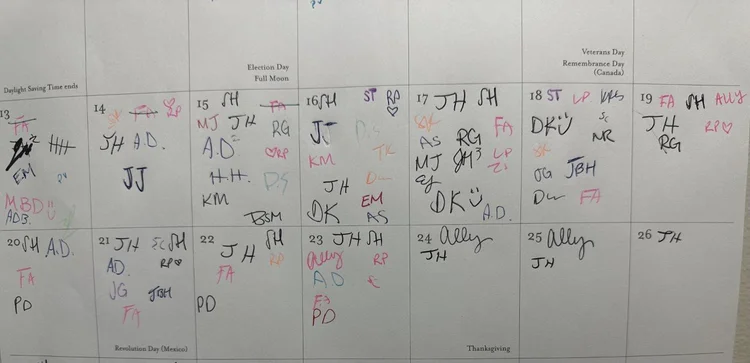 Daylight Saving Time ends
Election Day
Full Moon
Veterans Day
Remembrance Day
(Canada)
13
FA
EM
MBD
14
FA RP
JH A.D.
JJ
15 SH FA
MJ JH RG
A.D.
RP
H.H. D.S
KM
BSM
16 SH ST RP
JJ D.S
KM TR
JH
DK EM
AS
17 JH SH
SK FA
AS RG
MJ JH3 LP
EJ
DK A.D.
18 ST LP
DK SC
MR
SK
JG JBH
FA
19 FA SH ALLY
JH RP
RG
20 SH A.D.
FA
PD
21 JH SC SH
AD. RP
JG JBH
FA
22 SH
JH RP
FA
PD
23 JH SH
Ally RP
AD
PD
24 Ally
JH
25 Ally
JH
26 JH
Revolution Day (Mexico)
Thanksgiving